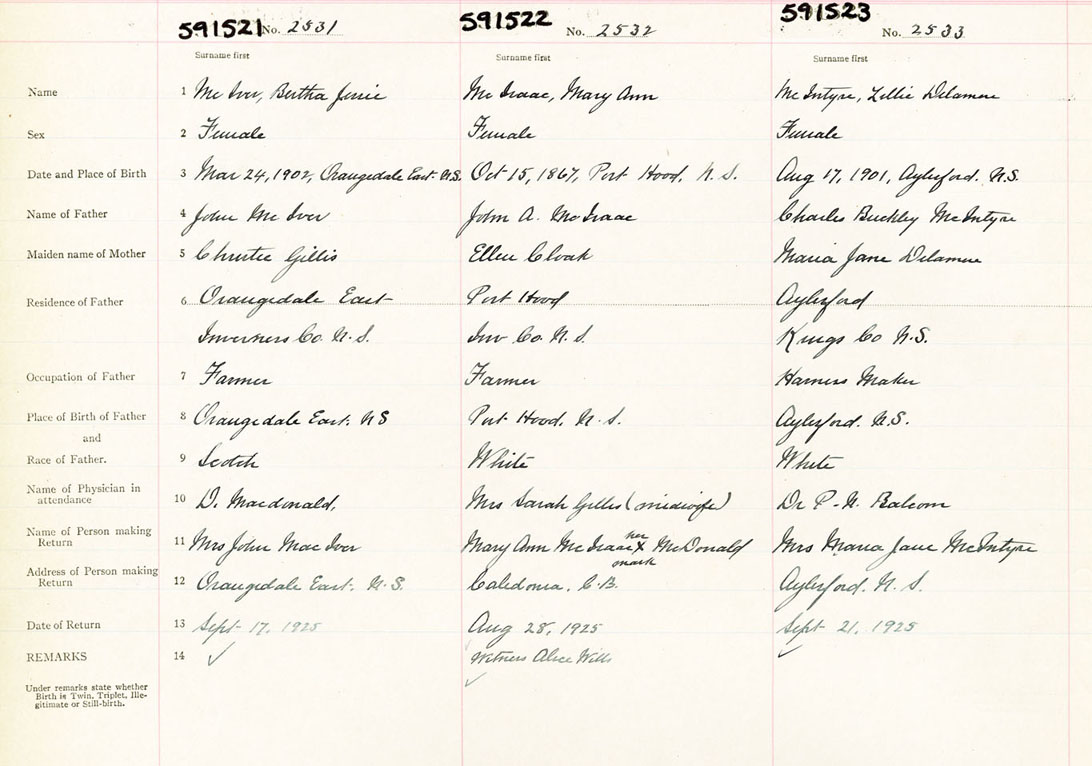 591521 No. 2531 591522 No. 2532 591523 No. 2533
Surname first Surname first Surname first
Name 1 Mc Iver, Bertha Jessie Mc Isaac, Mary Ann Mc Intyre, Zellie Delamere
Sex 2 Female Female Female
Date and Place of Birth 3 Mar 24, 1902, Orangedale East N.S. Oct 15, 1867, Port Hood, N.S. Aug 17, 1901, Aylesford. N.S.
Name of Father 4 John Mc Iver John A. McIsaac Charles Buckley McIntyre
Maiden name of Mother 5 Christie Gillis Ellen Cloak Maria Jane Delamere
Residence of Father 6 Orangedale East Port Hood Aylesford
Inverness Co. N.S. Inv Co. N.S. Kings Co N.S.
Occupation of Father 7 Farmer Farmer Harness Maker
Place of Birth of Father 8 Orangedale East. NS Port Hood. N.S. Aylesford. N.S.
and
Race of Father. 9 Scotch White White
Name of Physician in
attendance 10 D. Macdonald, Mrs Sarah Gillis (midwife) Dr P. N. Balcom
Name of Person making
Return 11 Mrs John Mac Iver Mary Ann McIsaac her X mark McDonald Mrs Maria Jane McIntyre
Address of Person making
Return 12 Orangedale East. N.S. Caledonia, C.B. Aylesford. N.S.
Date of Return 13 Sept 17, 1925 Aug 28, 1925 Sept 21, 1925
REMARKS 14 ✓ Witness Alice Wills ✓
✓
Under remarks state whether
Birth is Twin, Triplet, Ille-
gitimate or Still-birth.